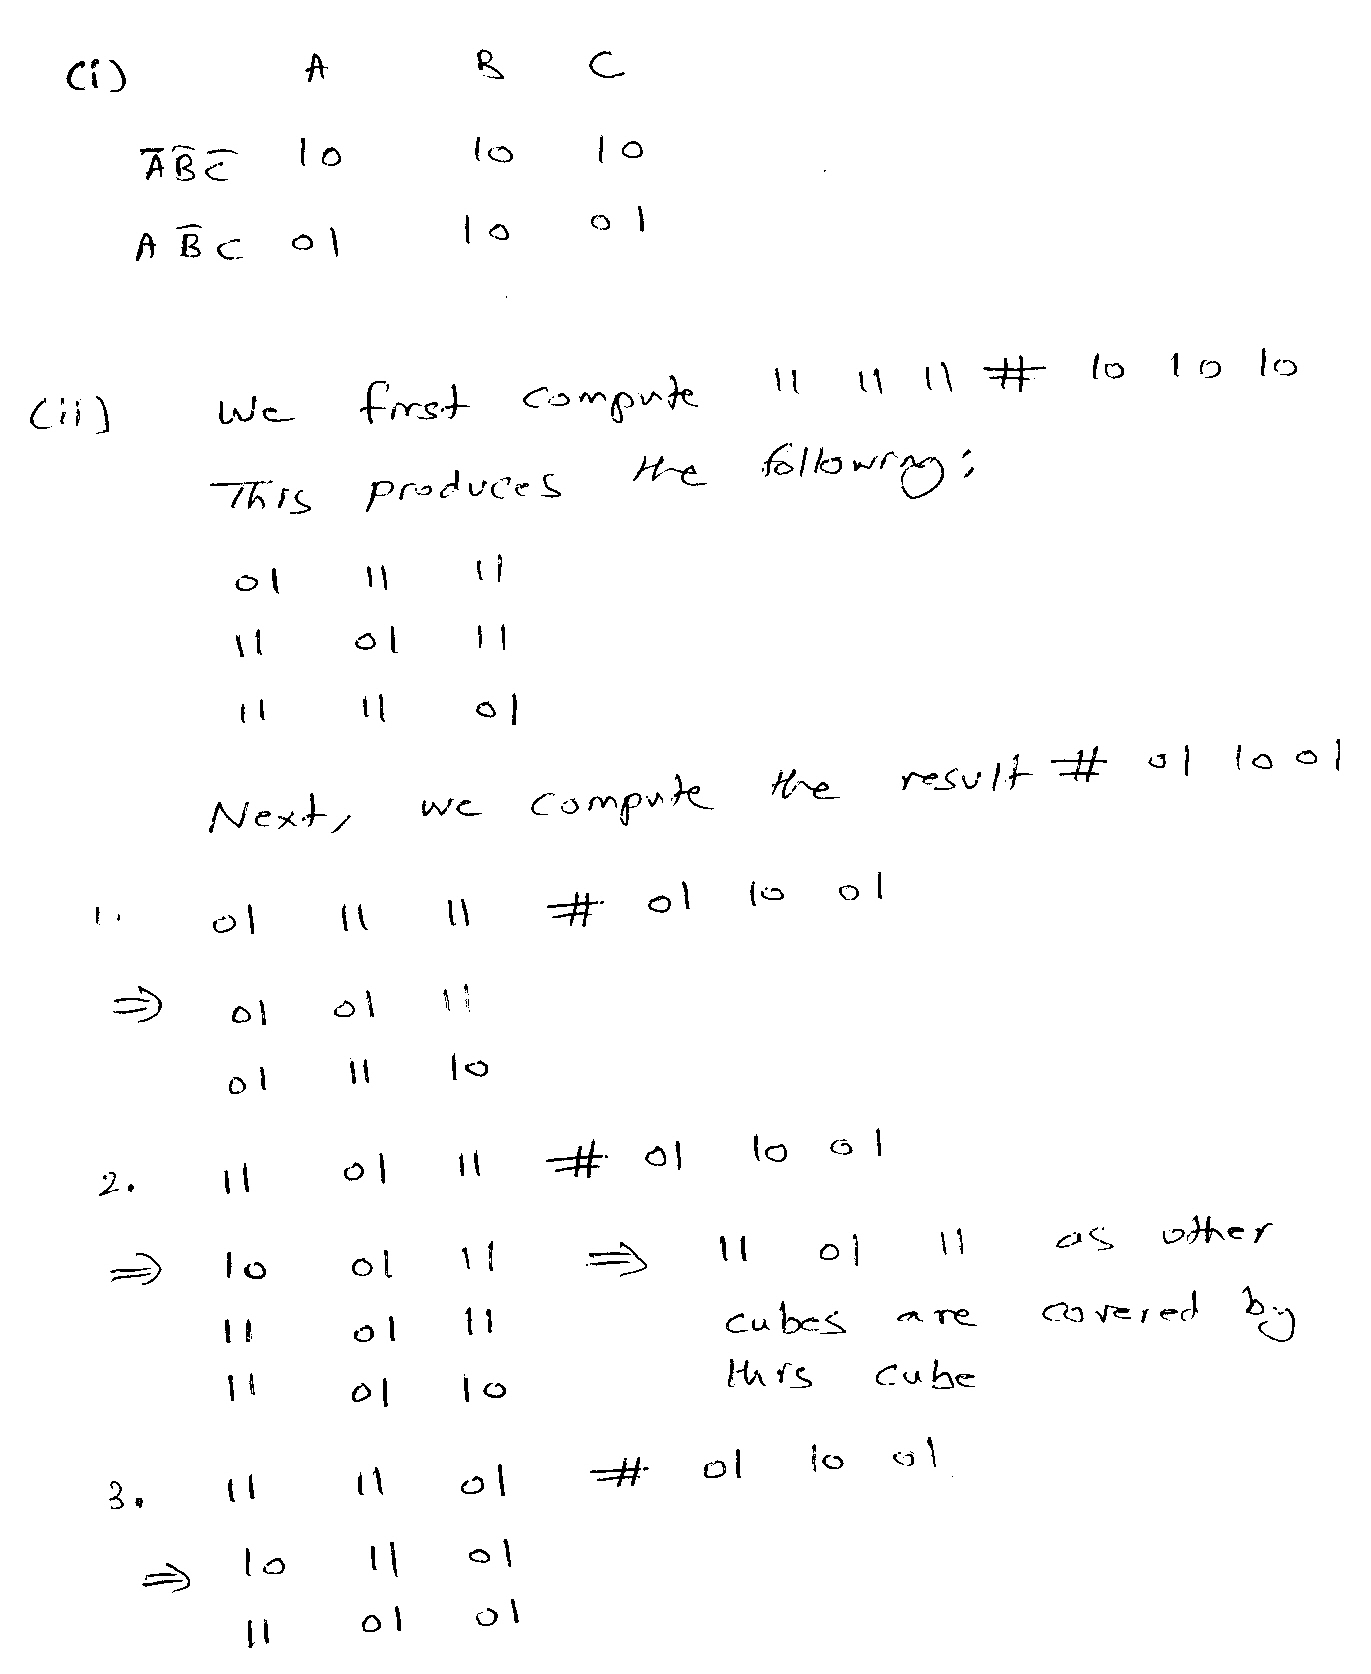 (i) A B C
A̅B̅C̅ 10 10 10
A B̅ C 01 10 01
(ii) We first compute 11 11 11 # 10 10 10
This produces the following:
01 11 11
11 01 11
11 11 01
Next, we compute the result # 01 10 01
1. 01 11 11 # 01 10 01
⇒ 01 01 11
01 11 10
2. 11 01 11 # 01 10 01
⇒ 10 01 11 ⇒ 11 01 11 as other
11 01 11 cubes are covered by
11 01 10 this cube
3. 11 11 01 # 01 10 01
⇒ 10 11 01
11 01 01